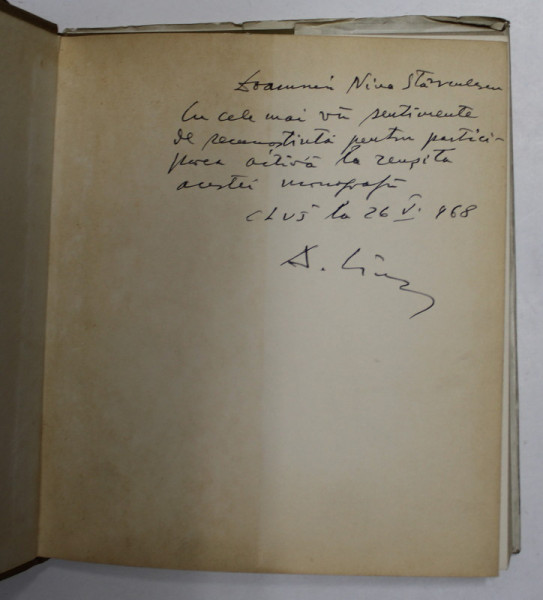 Doamnei Nina Stănculescu
Cu cele mai vii sentimente
de recunoștință pentru partici-
parea activă la reușita
acestei monografii
CLUJ la 26 V. 968